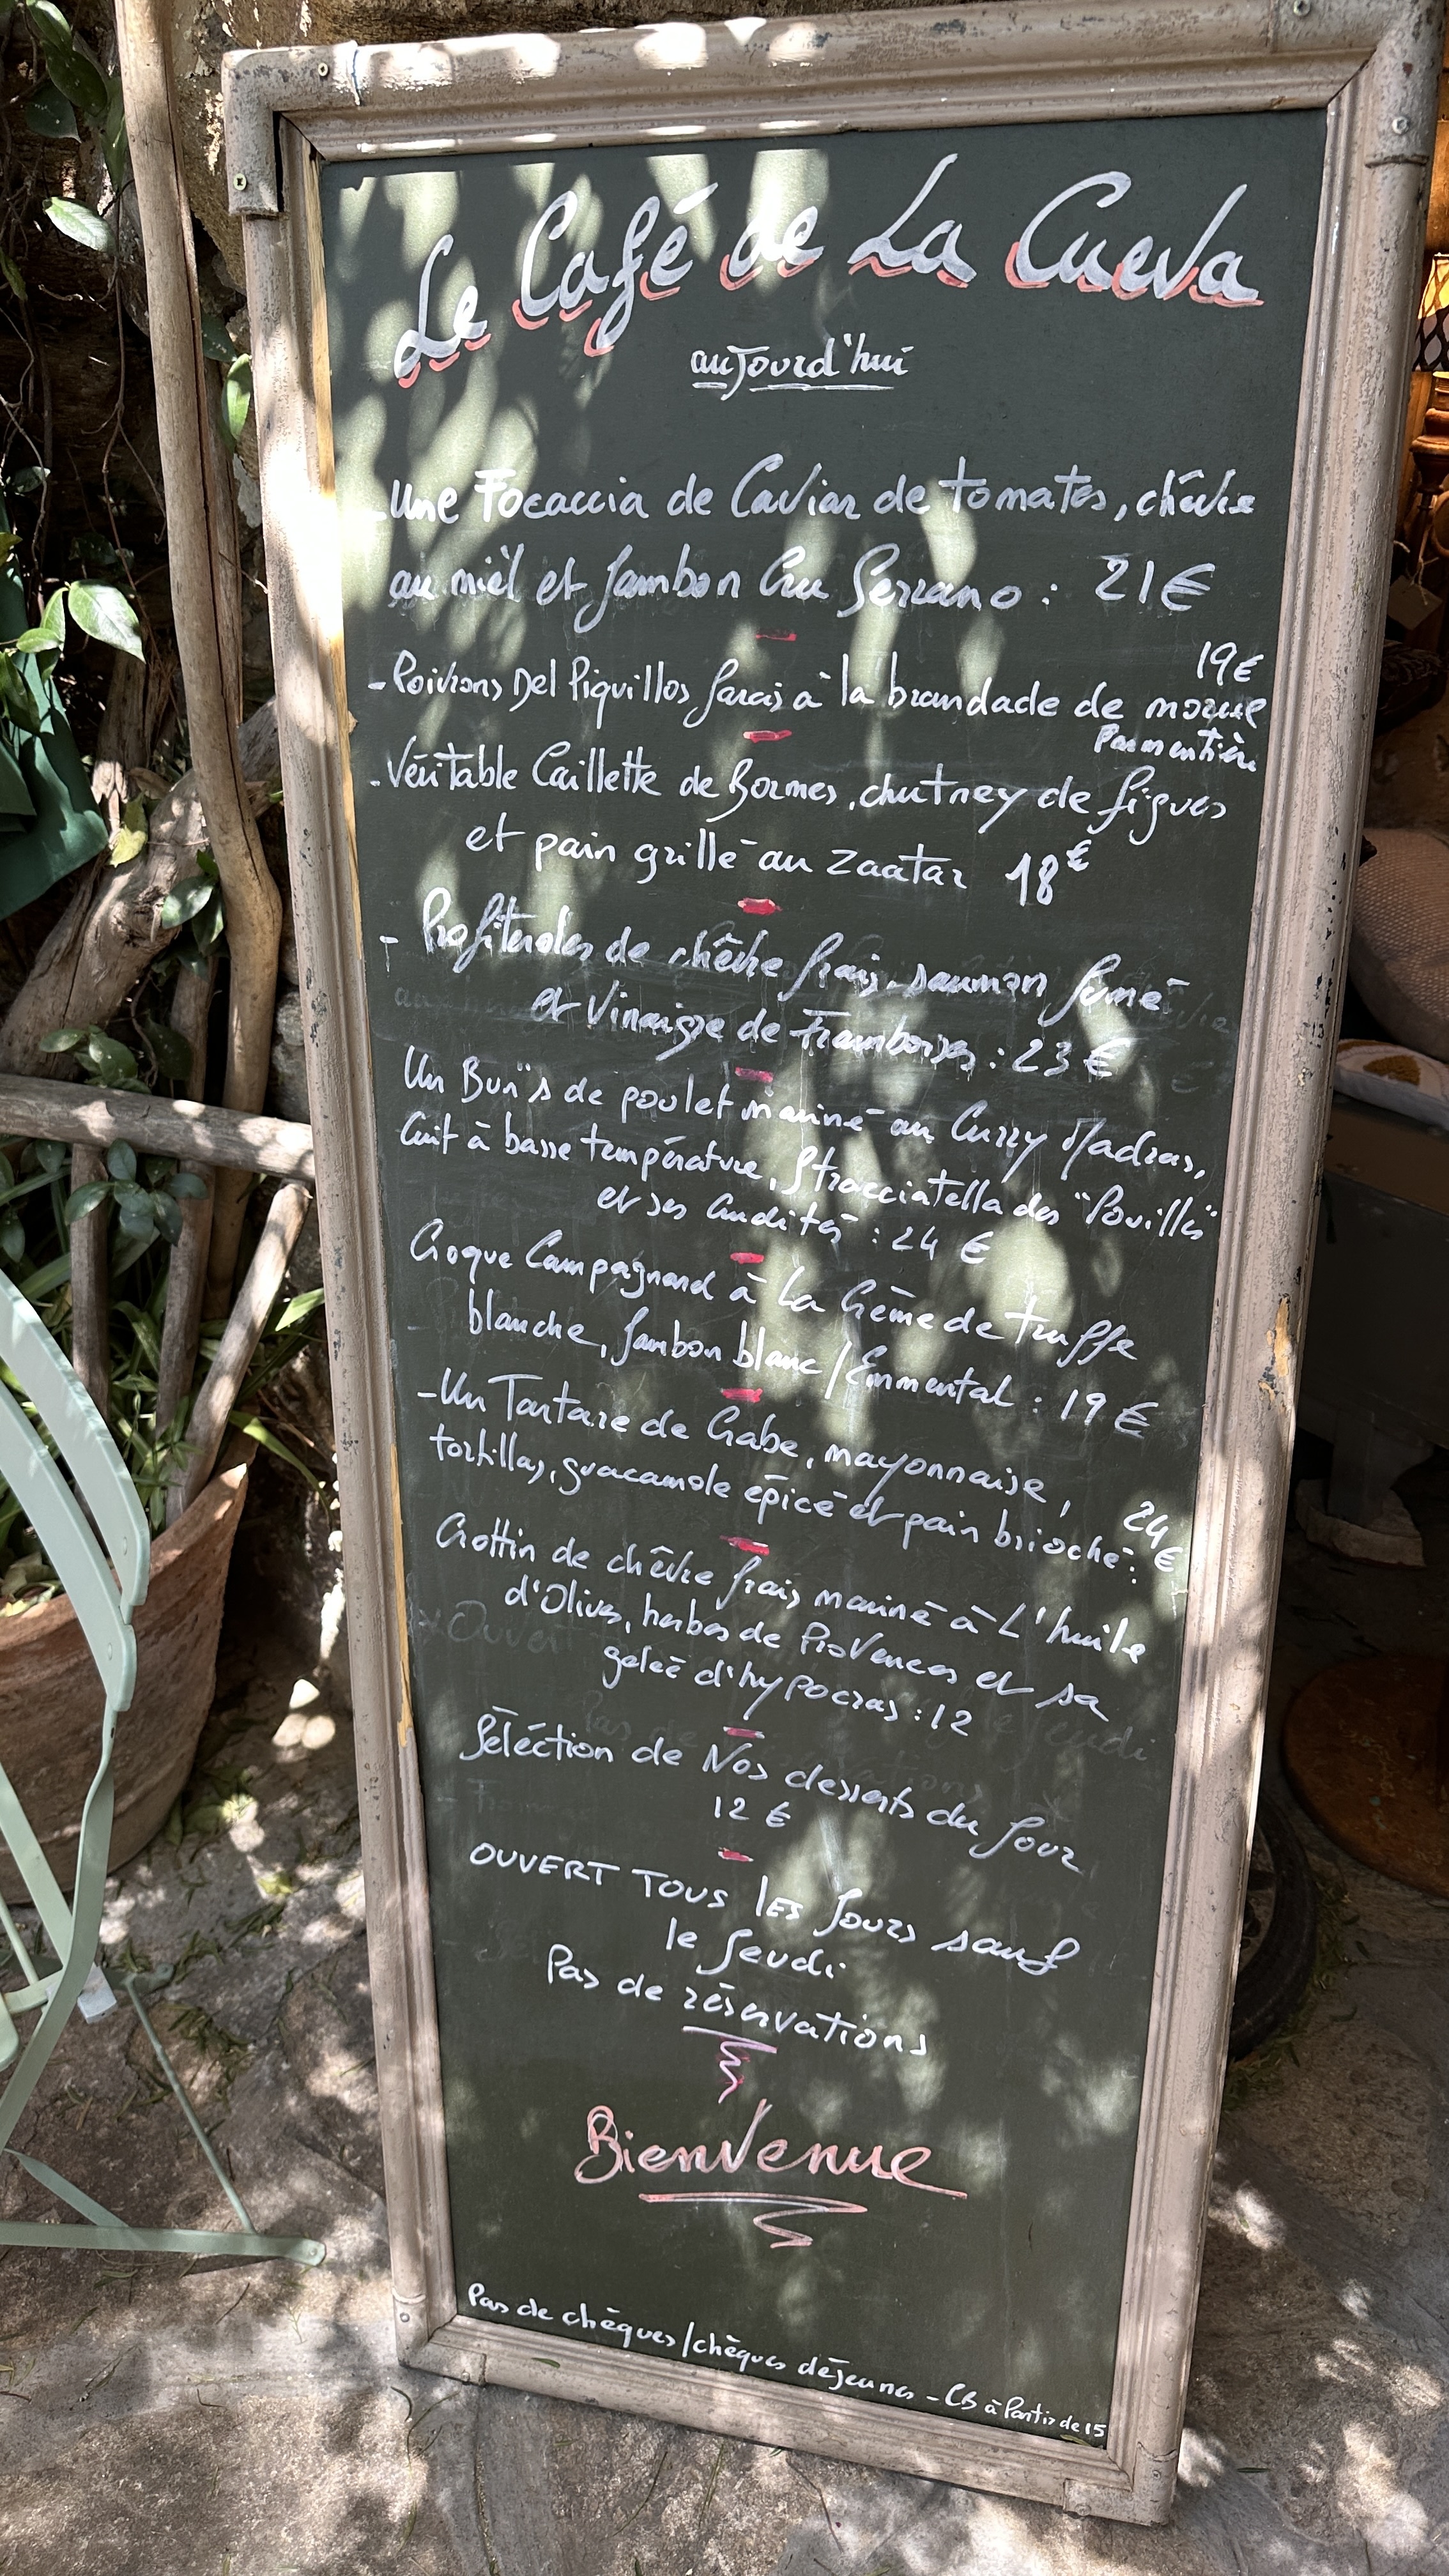 Le Café de La Cueva
aujourd'hui
- Une Focaccia de Caviar de tomates, chèvre
au miel et Jambon Cru Serrano : 21€
19€
- Poivrons Del Piquillos farcis à la brandade de morue
Parmentière
- Véritable Caillette de Bormes, chutney de figues
et pain grillé au zaatar 18€
- Profiteroles de chèvre frais, saumon fumé
et Vinaigre de Framboises : 23 €
Un Bun's de poulet mariné au Curry Madras,
Cuit à basse température, Stracciatella des "Pouilles"
et ses Crudités : 24 €
Croque Campagnard à La Crème de truffe
blanche, Jambon blanc / Emmental : 19 €
- Un Tartare de Crabe, mayonnaise,
tortillas, guacamole épicé et pain brioché : 24 €
Crottin de chèvre frais mariné à L'huile
d'Olives, herbes de Provences et sa
geleé d'hypocras : 12
Séléction de Nos desserts du Jour
12 €
OUVERT TOUS lES Jours sauf
le Jeudi
Pas de réservations
Bienvenue
Pas de chèques / chèques déjeuners - CB à Partir de 15